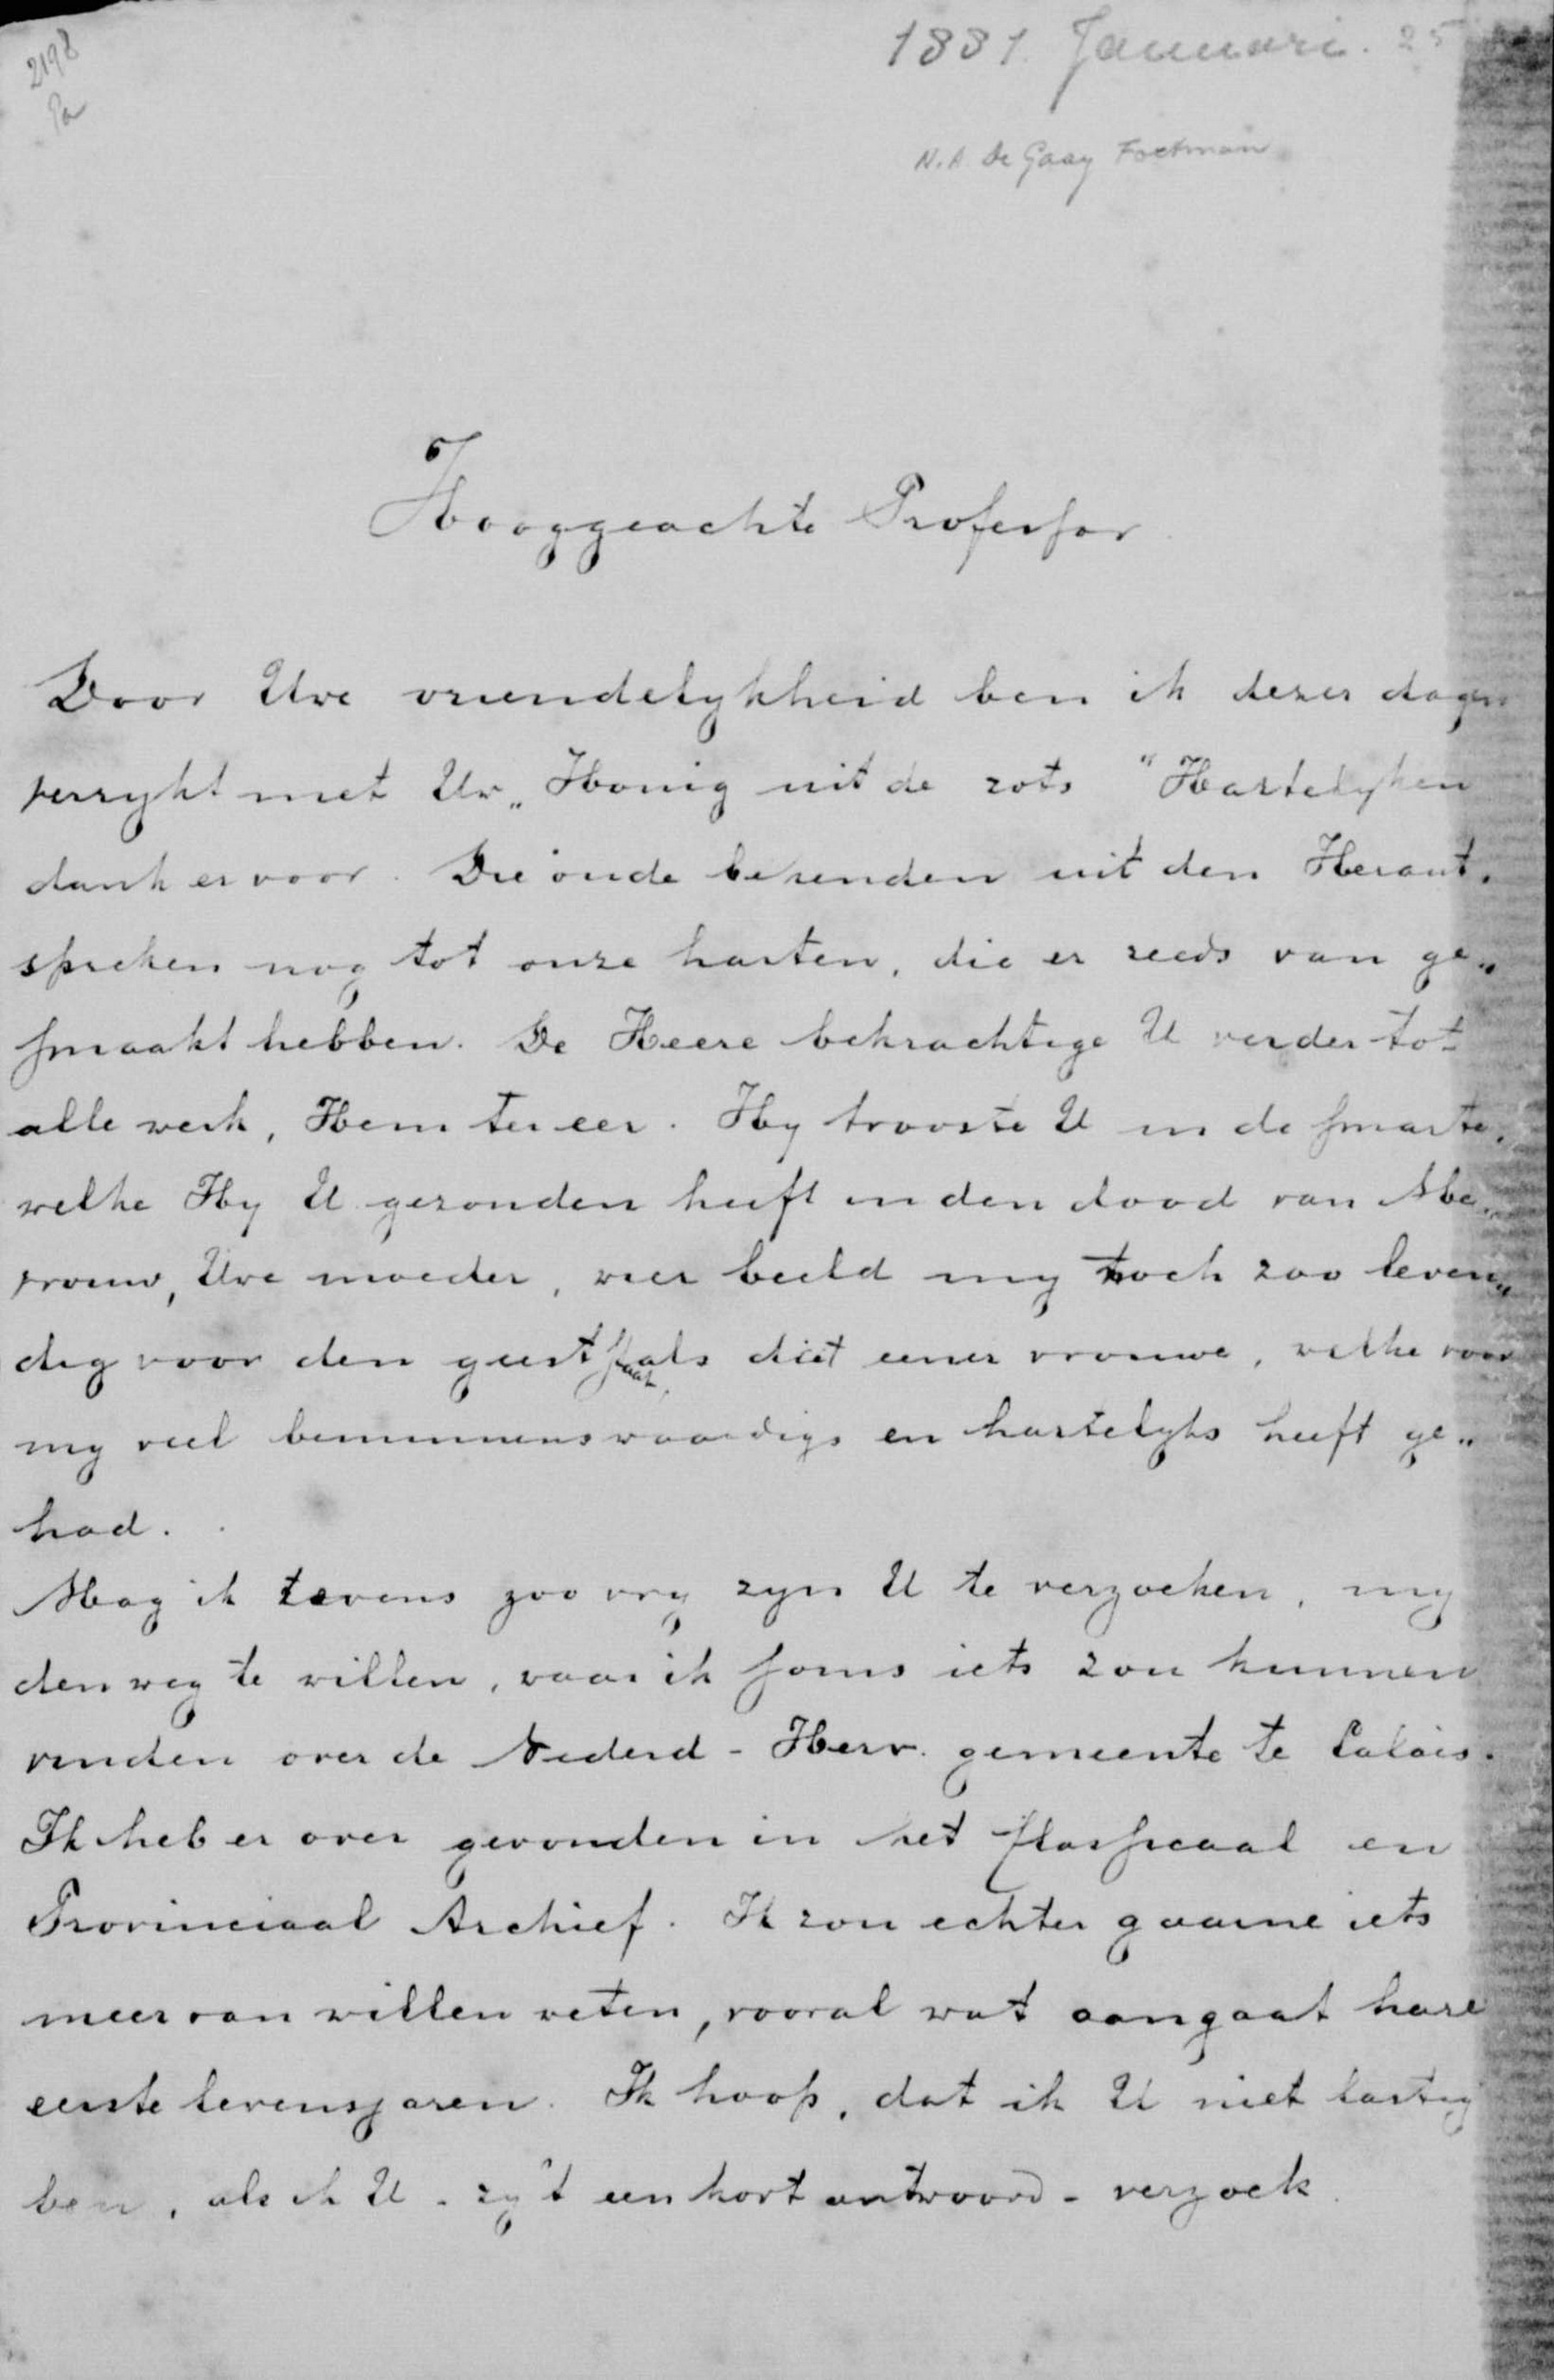 2198
Pa
1881. Januari. 25
N. A. de Gaay Fortman
Hooggeachte Professor
Door Uwe vriendelykheid ben ik dezer dagen
verrykt met Uw „Honig uit de rots" Hartelyken
dank er voor. Die oude bekenden uit den Heraut.
spreken nog tot onze harten, die er reeds van ge„
smaakt hebben. De Heere bekrachtige U verder tot
alle werk, Hem ter eer. Hy trooste U in de smarte,
welke Hy U gezonden heeft in den dood van Me„
vrouw, Uwe moeder, wier beeld my noch zoo leven„
dig voor den geest staat, als dat eener vrouwe, welke voor
my veel beminnenswaardigs en hartelyks heeft ge„
had.
Mag ik tevens zoo vry zyn U te verzoeken, my
den weg te willen, waar ik soms iets zou kunnen
vinden over de Nederd - Herv. gemeente te Calais.
Ik heb er over gevonden in het Classicaal en
Provinciaal Archief. Ik zou echter gaarne iets
meer van willen weten, vooral wat aangaat hare
eerste levensjaren. Ik hoop, dat ik U niet lastig
ben, als ik U - zy 't een kort antwoord - verzoek.